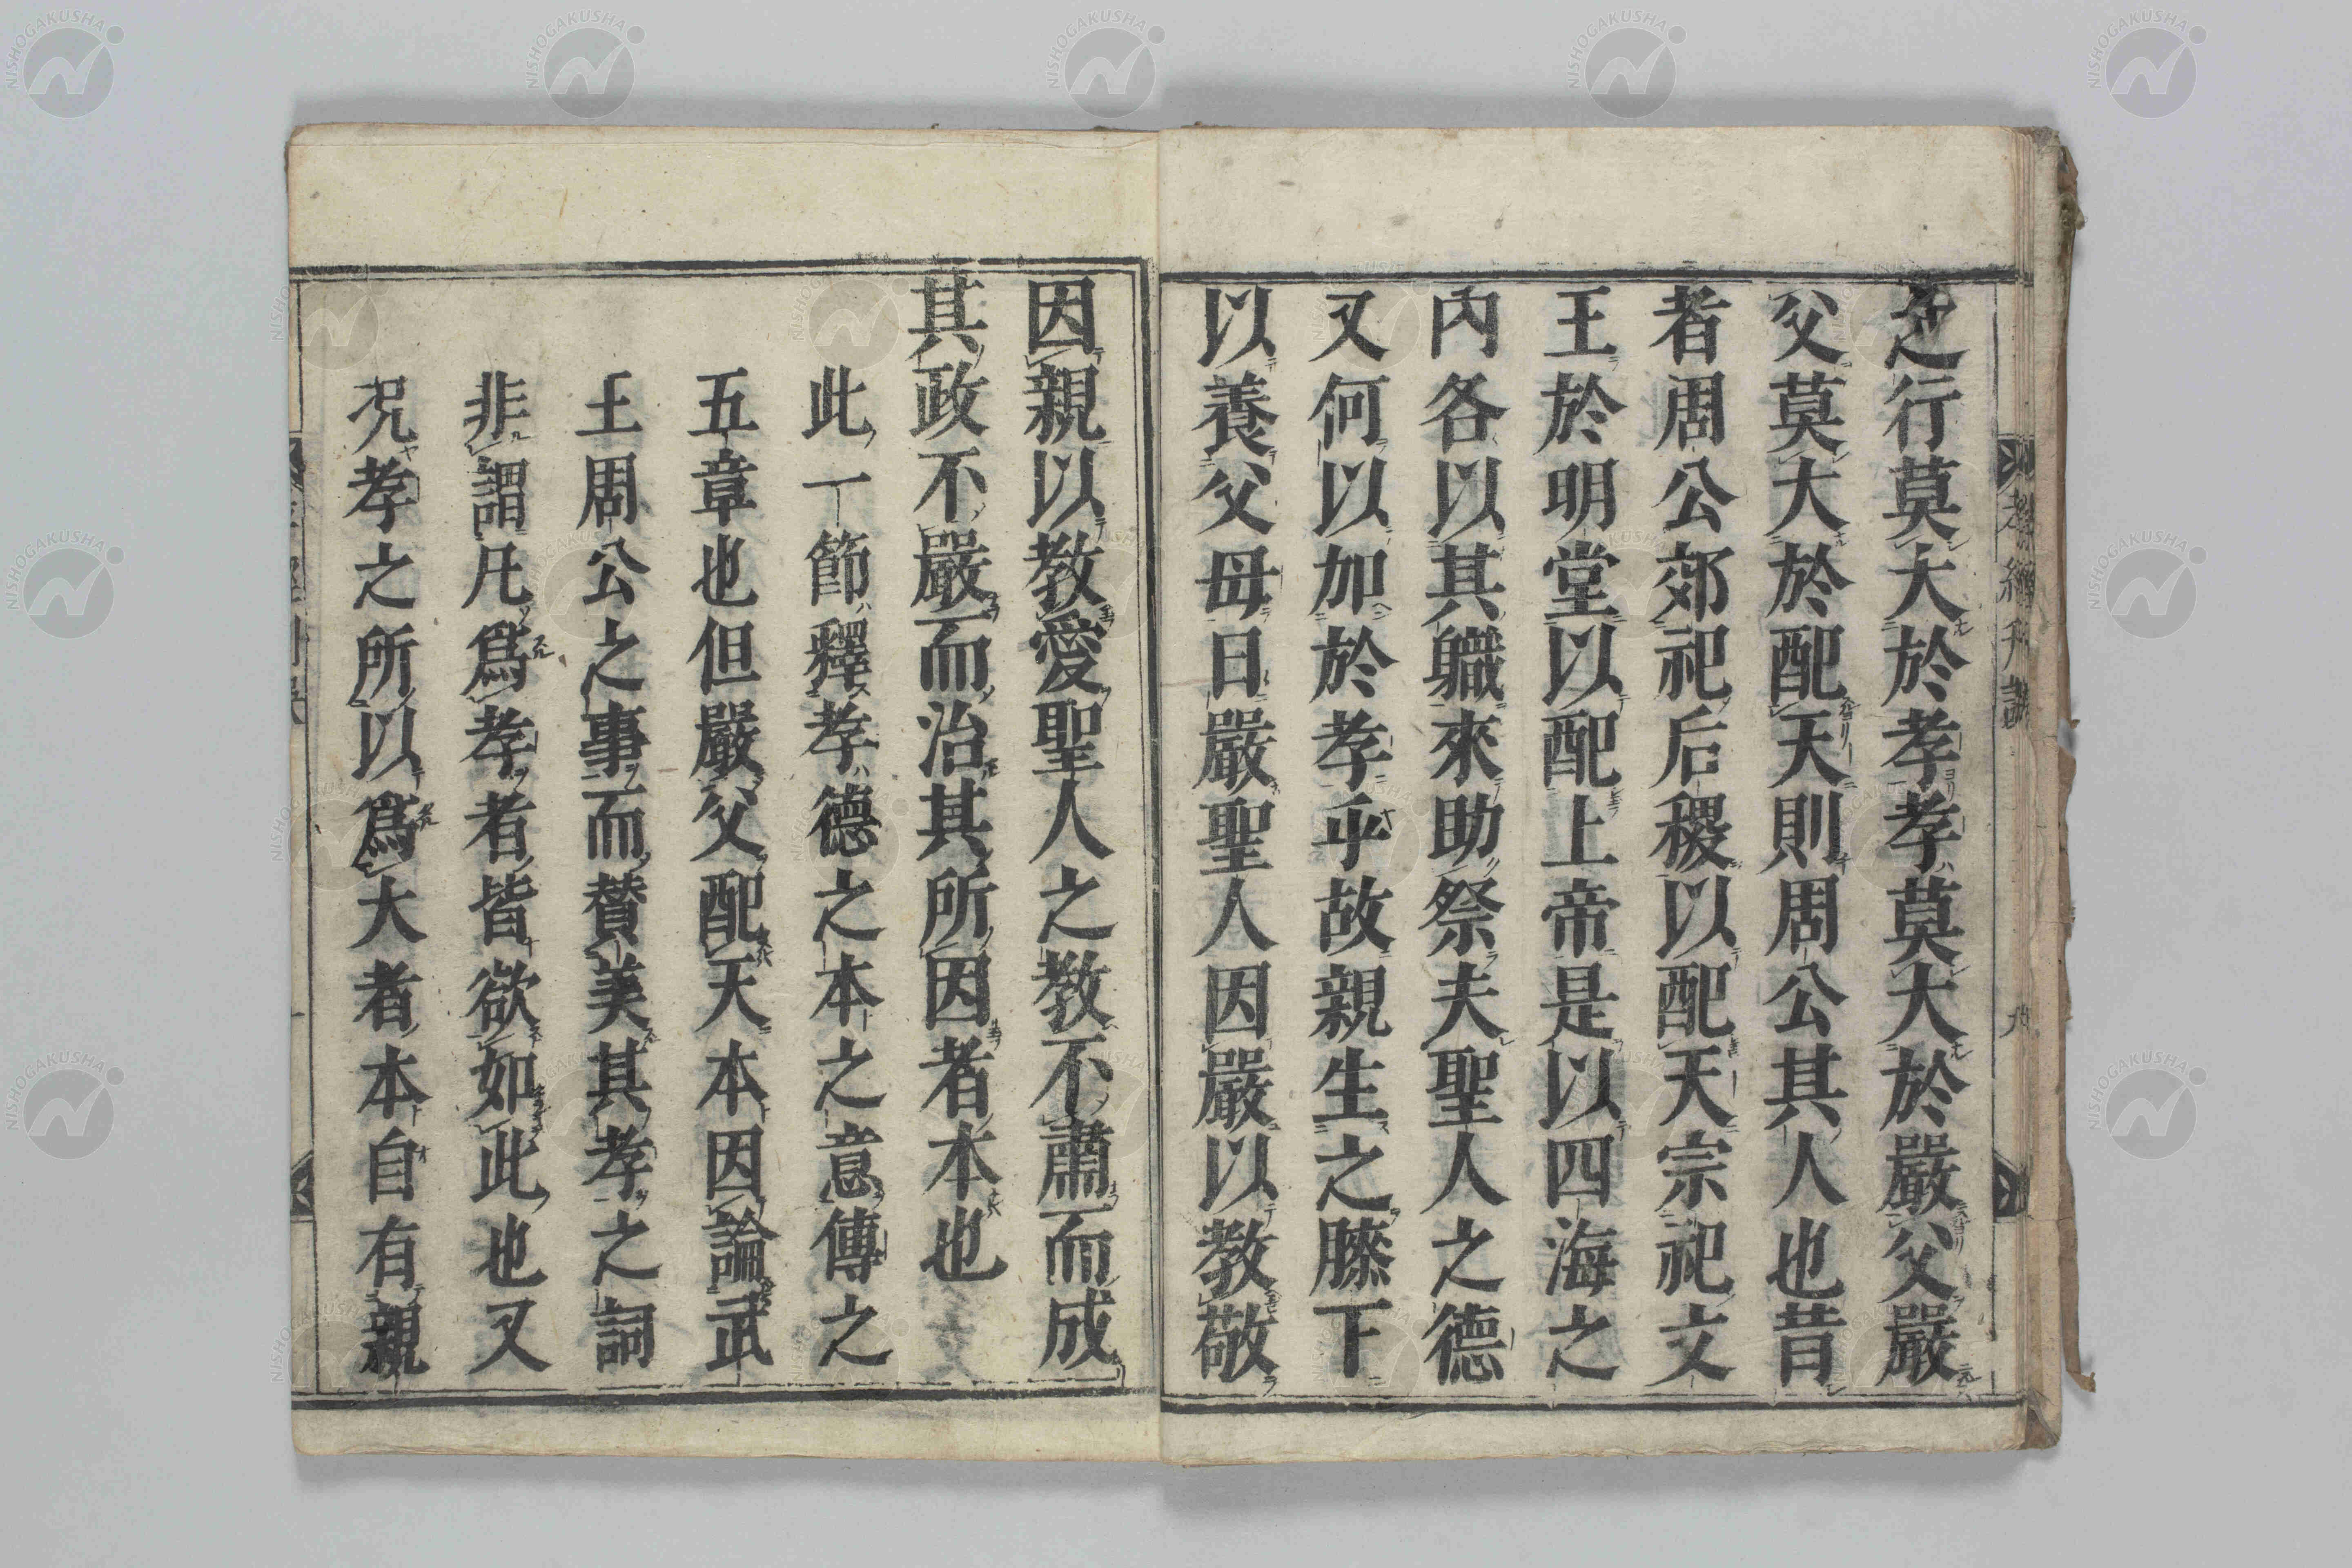 之行莫大於孝孝莫大於嚴父嚴
父莫大於配天則周公其人也昔
者周公郊祀后稷以配天宗祀文
王於明堂以配上帝是以四海之
內各以其職來助祭夫聖人之德
又何以加於孝乎故親生之膝下
以養父母日嚴聖人因嚴以教敬
因親以教愛聖人之教不肅而成
其政不嚴而治其所因者本也
此一節釋孝德之本之意傳之
五章也但嚴父配天本因論武
王周公之事而賛美其孝之詞
非謂凡爲孝者皆欲如此也又
况孝之所以爲大者本自有親